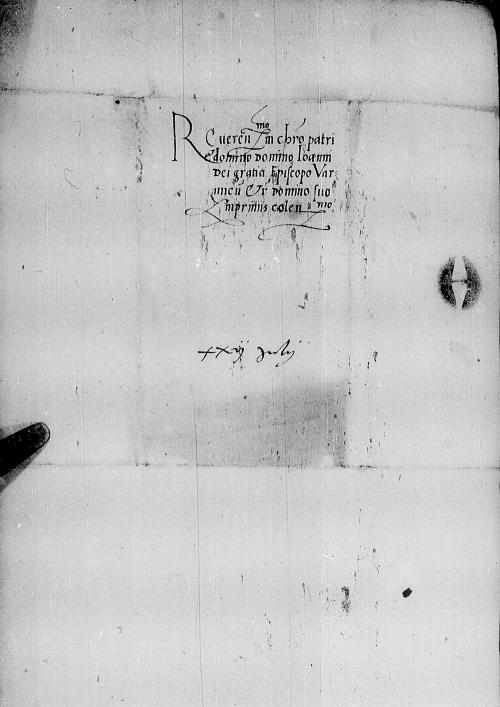 Reueren mo in chro patri
et domino domino Ioanni
dei gratia Episcopo Var
mien Et domino suo
Imprimis colen mo
xxvij Julij